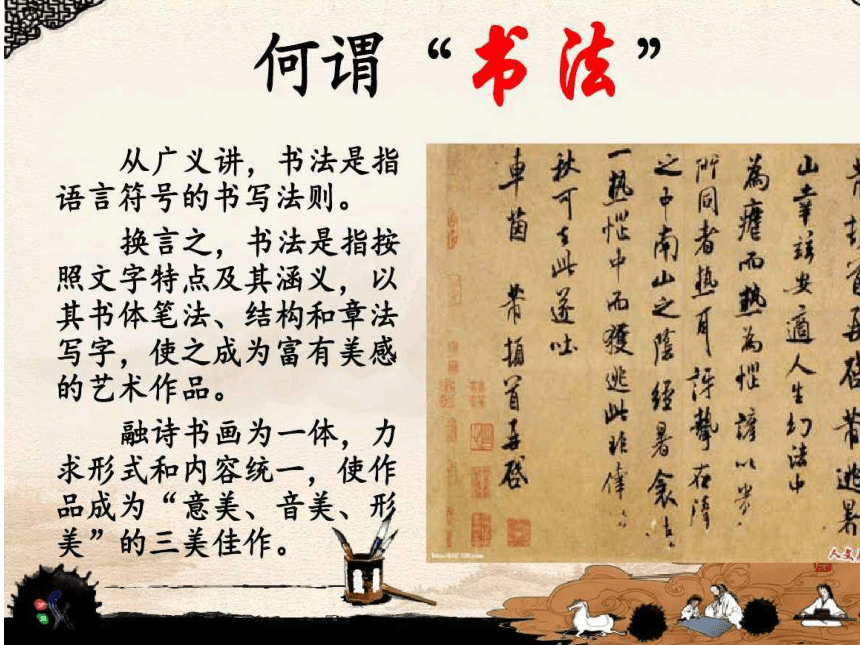 何谓“书法”
从广义讲，书法是指
语言符号的书写法则。
换言之，书法是指按
照文字特点及其涵义，以
其书体笔法、结构和章法
写字，使之成为富有美感
的艺术作品。
融诗书画为一体，力
求形式和内容统一，使作
品成为“意美、音美、形
美”的三美佳作。
山辛
安適人生幻法中
為瘧而熱為惺
所同者熱耳訝聲在隋
之中南山之陰經暑衾
一熱惺中而獲逃此非偉
秋可去此遂吐
車茵 芾頓首再啓